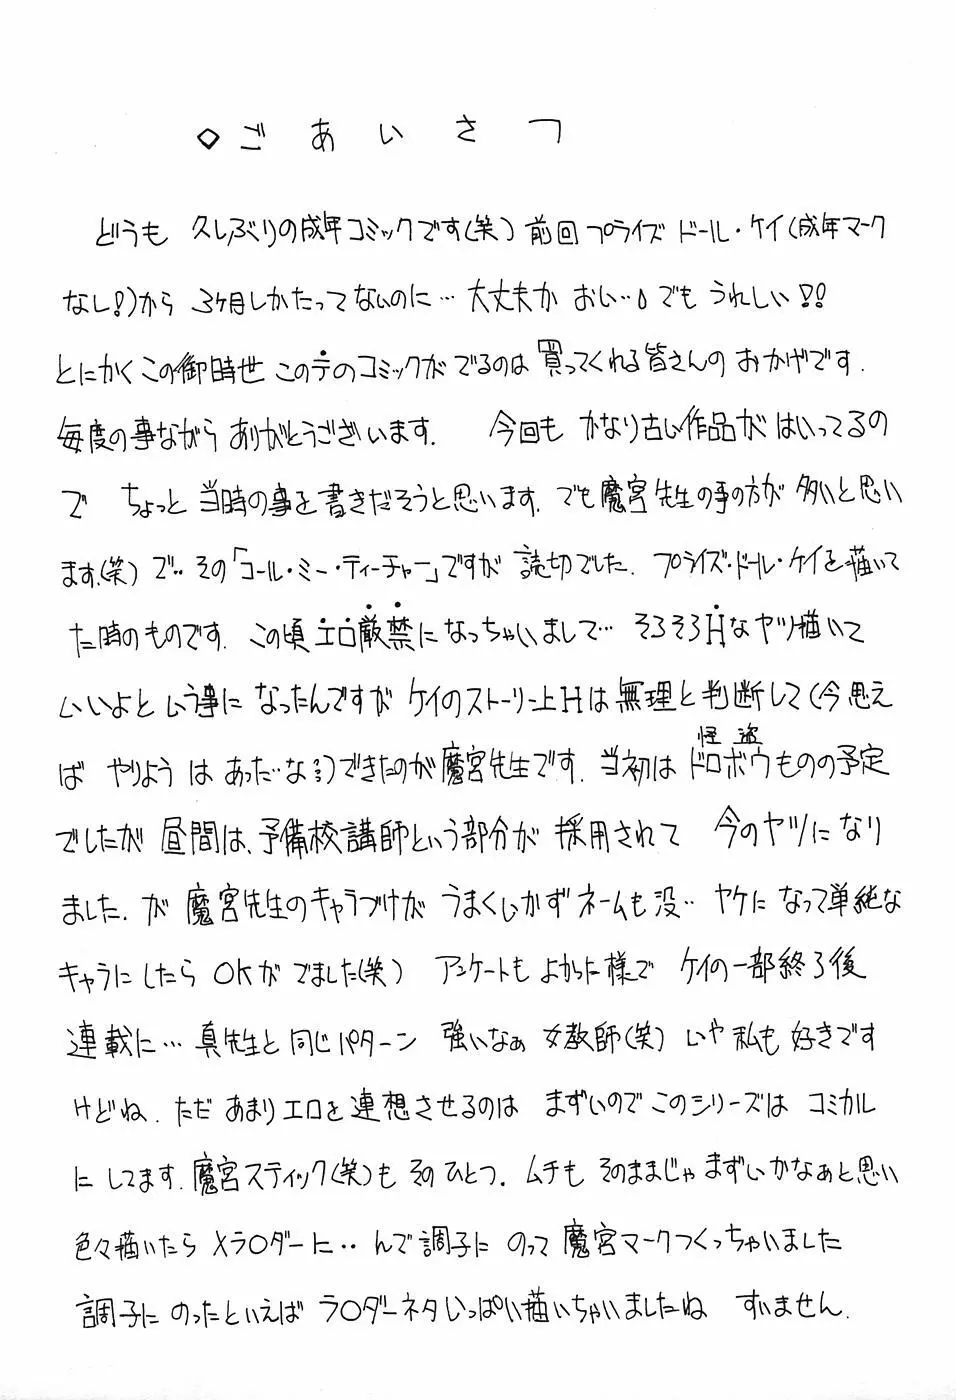 ◇ごあいさつ
どうも 久しぶりの成年コミックです(笑) 前回プライズドール・ケイ(成年マーク
なし!)から 3ヶ月しかたってないのに… 大丈夫か おい… でも うれしい!!
とにかくこの御時世 この手のコミックがでるのは 買ってくれる皆さんの おかげです.
毎度の事ながら ありがとうございます. 今回も かなり古い作品が はいってるの
で ちょっと 当時の事を書きだそうと思います. でも魔宮先生の事の方が 多いと思い
ます.(笑) で‥その「コール・ミー・ティーチャー」ですが 読切でした. プライズ・ドール・ケイを描いて
た時のものです. この頃 エロ厳禁になっちゃいまして… そろそろHなヤツ描いて
いいよと いう事に なったんですが ケイのストーリー上Hは無理と判断して(今思え
ば やりよう は あった‥な)できたのが魔宮先生です. 当初は ドロボウものの予定
怪盗
でしたが 昼間は、予備校講師という部分が 採用されて 今のヤツになり
ました. が 魔宮先生のキャラづけが うまくいかずネームも没‥ ヤケに なって単純な
キャラにしたら OKが でました(笑) アンケートもよかった様で ケイの一部終了後
連載に… 真先生と同じパターン 強いなぁ 女教師(笑) いや 私も 好きです
けどね. ただ あまりエロを連想させるのは まずいのでこのシリーズは コミカル
に してます. 魔宮スティック(笑)も そのひとつ. ムチも そのままじゃまずいかなぁと思い
色々描いたら メラ○ダーに‥ んで調子に のって 魔宮マークつくっちゃいました
調子に のったといえば ラ○ダーネタいっぱい描いちゃいましたね すいません.